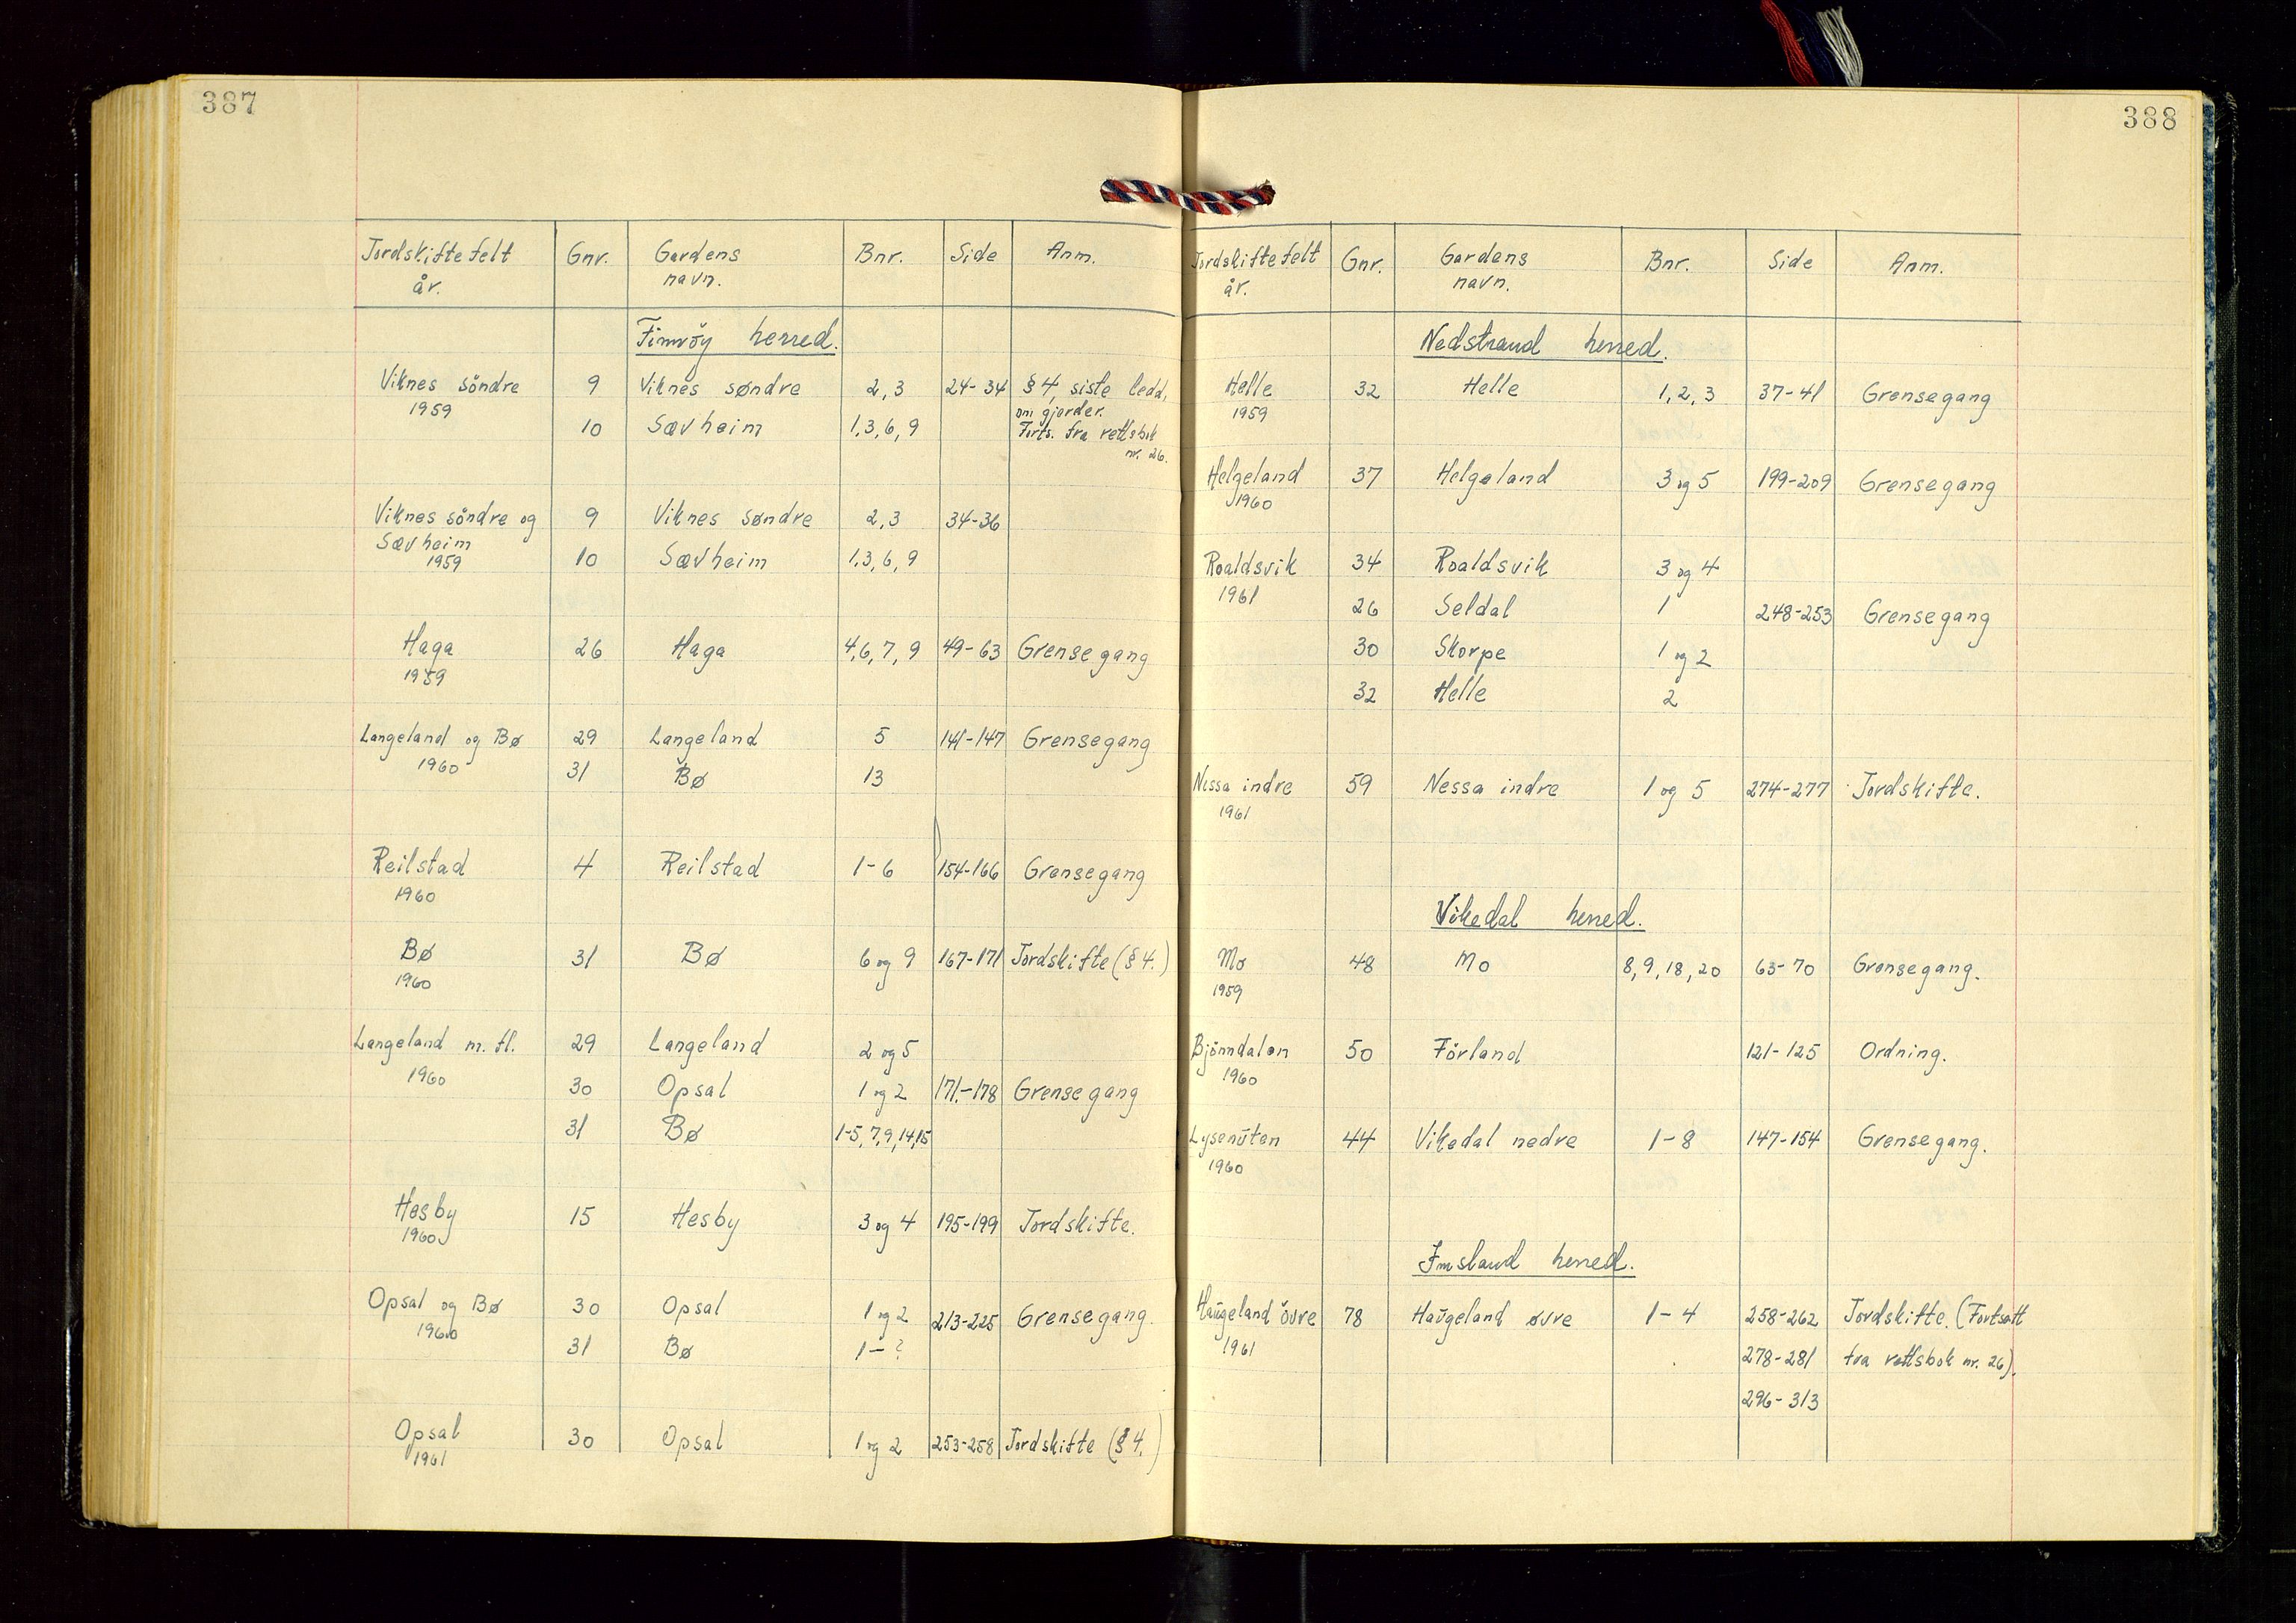 387
Jordskiftefelt år. Gnr. Gardens navn. Bnr. Side Anm.
Finnöy herred.
Viknes söndre 9 Viknes søndre 2, 3 24-34 § 4, siste ledd,
1959 om gjerder.
10 Sævheim 1, 3, 6, 9 Forts. fra rettsbok
nr. 26.
Viknes söndre og 9 Viknes søndre 2, 3 34-36
Sævheim
1959 10 Sævheim 1, 3, 6, 9
Haga 26 Haga 4, 6, 7, 9 49-63 Grensegang
1959
Langeland og Bø 29 Langeland 5 141-147 Grensegang
1960 31 Bø 13
Reilstad 4 Reilstad 1-6 154-166 Grensegang
1960
Bø 31 Bø 6 og 9 167-171 Jordskifte (§ 4.)
1960
Langeland m. fl. 29 Langeland 2 og 5
1960 30 Opsal 1 og 2 171.-178 Grensegang
31 Bø 1-5, 7, 9, 14, 15
Hesby 15 Hesby 3 og 4 195-199 Jordskifte.
1960
Opsal og Bø 30 Opsal 1 og 2 213-225 Grensegang.
1960
31 Bø 1-?
Opsal 30 Opsal 1 og 2 253-258 Jordskifte (§ 4.)
1961
388
Jordskiftefelt år. Gnr. Gardens navn. Bnr. Side Anm.
Nedstrand herred.
Helle 32 Helle 1, 2, 3 37-41 Grensegang
1959
Helgeland 37 Helgeland 3 og 5 199-209 Grensegang
1960
Roaldsvik 34 Roaldsvik 3 og 4
1961 26 Seldal 1 248-253 Grensegang
30 Skorpe 1 og 2
32 Helle 2
Nessa indre 59 Nessa indre 1 og 5 274-277 Jordskifte.
1961
Vikedal herred.
Mo 48 Mo 8, 9, 18, 20 63-70 Grensegang.
1959
Bjönndalen 50 Förland 121-125 Ordning.
1960
Lysenuten 44 Vikedal nedre 1-8 147-154 Grensegang.
1960
Imsland herred.
Haugeland övre 78 Haugeland øvre 1-4 258-262 Jordskifte. (Fortsatt
1961 278-281 fra rettsbok nr. 26).
296-313